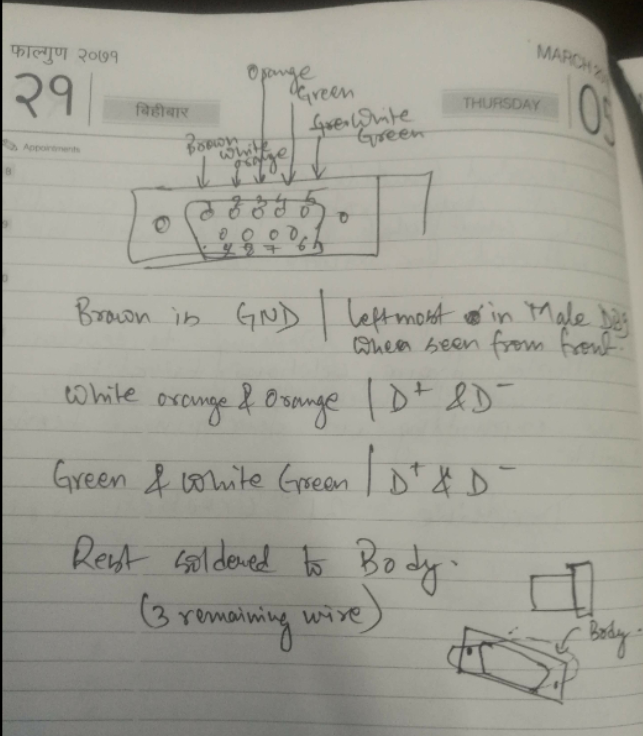 फाल्गुण २०७१
MARCH
२१
बिहीबार
THURSDAY
05
Appointments
Orange
Green
White
Green
Brown
White
orange
2 3 4 5
8 7 6
Brown is GND | leftmost in Male DB9
when seen from front.
White orange & Orange | D+ & D-
Green & White Green | D+ & D-
Rest soldered to Body.
(3 remaining wire)
Body